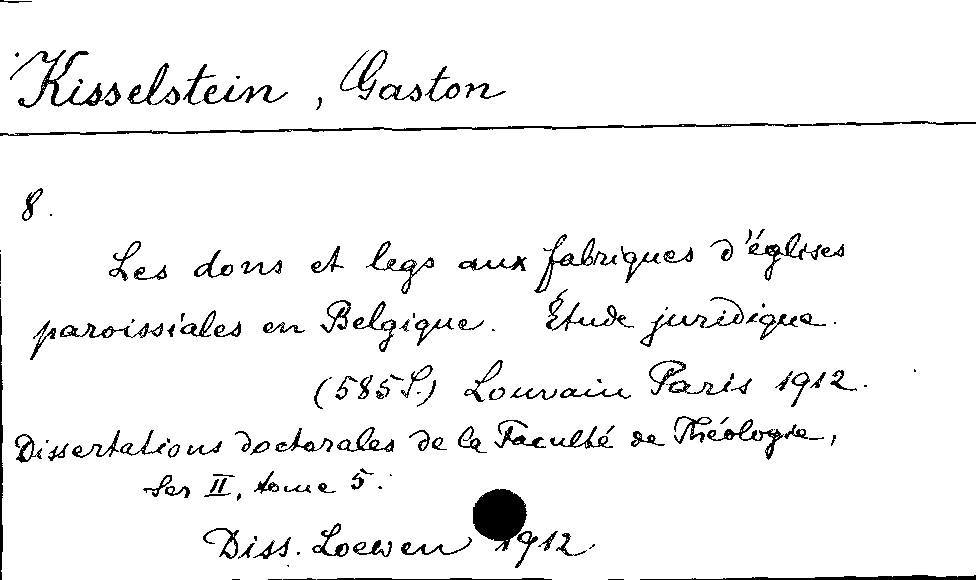 Kisselstein, Gaston
8.
Les dons et legs aux fabriques d'églises
paroissiales en Belgique. Étude juridique.
(585 S.) Louvain Paris 1912.
Dissertations doctorales de la Faculté de Théologie,
Ser II, tome 5.
Diss. Loewen 1912